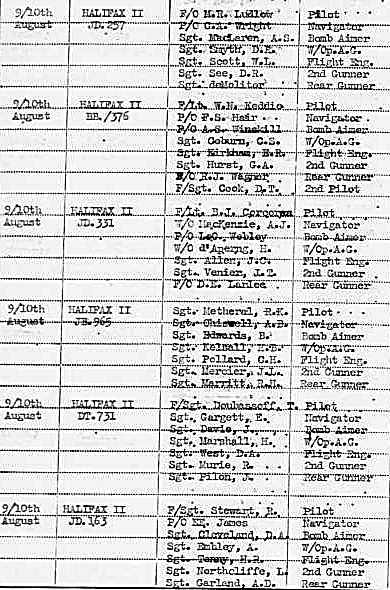 9/10th HALIFAX II F/O M.R. Ludlow Pilot
August JD.257 F/O C.A. Wright Navigator
Sgt. MacLaren, A.S. Bomb Aimer
Sgt. Smyth, D.E. W/Op.A.G.
Sgt. Scott, W.L. Flight Eng.
Sgt. See, D.R. 2nd Gunner
Sgt. deMolitor Rear Gunner
9/10th HALIFAX II F/Lt. W.N. Keddie Pilot
August BB./376 P/O F.S. Hair Navigator
P/O A.S. Winskill Bomb Aimer
Sgt. Coburn, C.S. W/Op.A.G.
Sgt. Kirkham, E.R. Flight Eng.
Sgt. Hurst, G.A. 2nd Gunner
W/O R.J. Wagner Rear Gunner
F/Sgt. Cook, D.T. 2nd Pilot
9/10th HALIFAX II F/Lt. B.J. Corcoran Pilot
August JD.331 W/O MacKenzie, A.J. Navigator
P/O L.C. Webley Bomb Aimer
W/O d'Aperng, H. W/Op.A.G.
Sgt. Allen, J.C. Flight Eng.
Sgt. Venier, J.T. 2nd Gunner
F/O D.E. Larlee Rear Gunner
9/10th HALIFAX II Sgt. Metheral, R.K. Pilot
August JB.965 Sgt. Chiswell, A.B. Navigator
Sgt. Edwards, B. Bomb Aimer
Sgt. Kelsall, H.B. W/Op.A.G.
Sgt. Pollard, C.H. Flight Eng.
Sgt. Mercier, J.L. 2nd Gunner
Sgt. Marritt, R.H. Rear Gunner
9/10th HALIFAX II F/Sgt. Doubassoff, T. Pilot
August DT.731 Sgt. Gargett, E. Navigator
Sgt. Davie, J. Bomb Aimer
Sgt. Marshall, H. W/Op.A.G.
Sgt. West, D.A. Flight Eng.
Sgt. Murie, R. 2nd Gunner
Sgt. Pilon, J. Rear Gunner
9/10th HALIFAX II F/Sgt. Stewart, R. Pilot
August JD.163 P/O James Navigator
Sgt. Cleveland, D.A. Bomb Aimer
Sgt. Embley, A. W/Op.A.G.
Sgt. Tenny, H.R. Flight Eng.
Sgt. Northcliffe, L. 2nd Gunner
Sgt. Garland, A.D. Rear Gunner